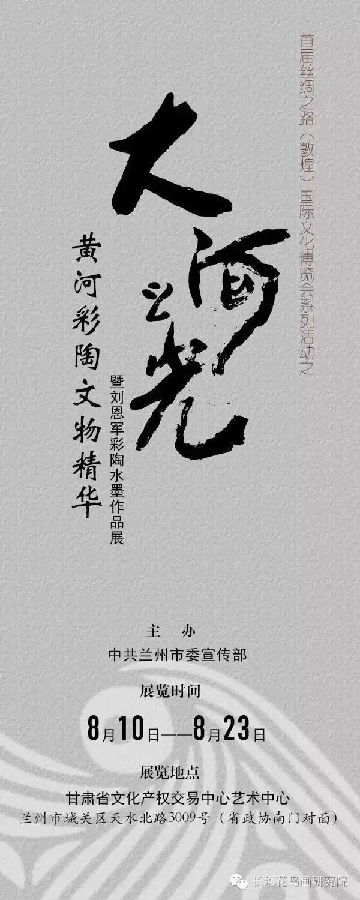 首届丝绸之路（敦煌）国际文化博览会系列活动之
大河之光
黄河彩陶文物精华
暨刘恩军彩陶水墨作品展
主 办
中共兰州市委宣传部
展览时间
8月10日——8月23日
展览地点
甘肃省文化产权交易中心艺术中心
兰州市城关区天水北路3009号（省政协南门对面）
长河花鸟画研究院